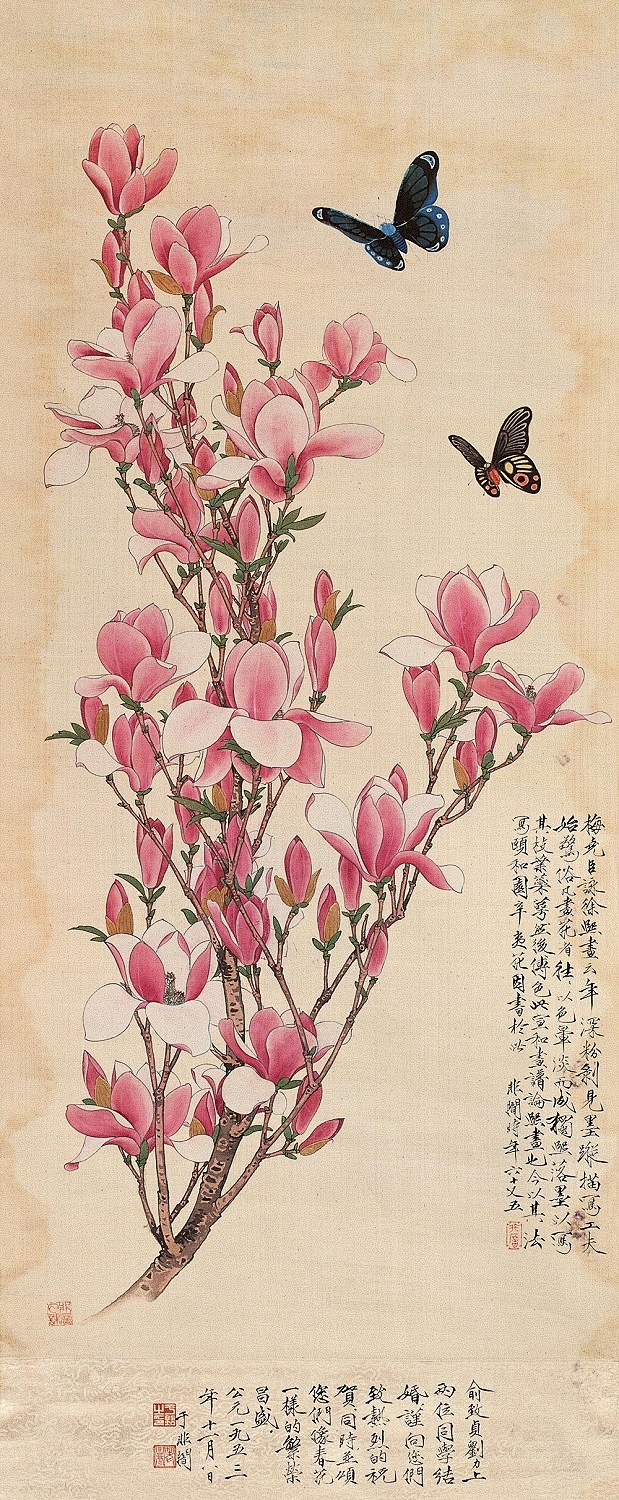 梅堯臣詠徐熙畫云年深粉剝見墨蹤描寫工夫
始驚俗凡畫花者往〻以色暈淡而成獨熙落墨以寫
其枝葉蘂萼然後傅色此宣和畫譜論熙畫也今以其法
寫頤和園辛夷花因書於此 非闇時年六十又五
俞致貞劉力上
兩位同學結
婚謹向您們
致熱烈的祝
賀同時並頌
您們像春花
一樣的繁榮
昌盛
公元一九五三
年十一月八日
于非闇